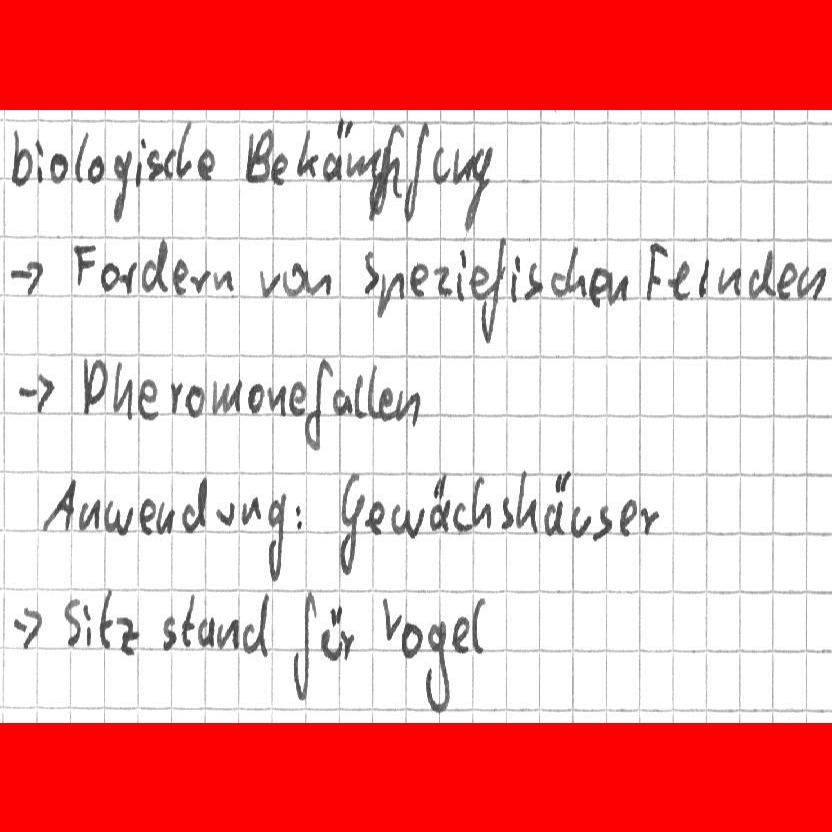 biologische Bekämpfung
-> Fordern von speziefischen Feinden
-> Pheromonefallen
Anwendung: Gewächshäuser
-> Sitz stand für Vogel